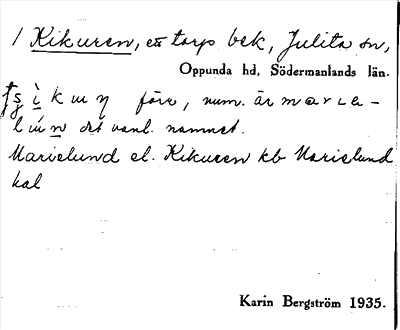 1 Kikuren, ett torp bek, Julita sn,
Oppunda hd, Södermanlands län.
k ɯ η förr, num. är m a r ɩ ɛ -
l ɯ́ n det vanl. namnet.
Marielund el. Kikuren kb Marielund
kal
Karin Bergström 1935.